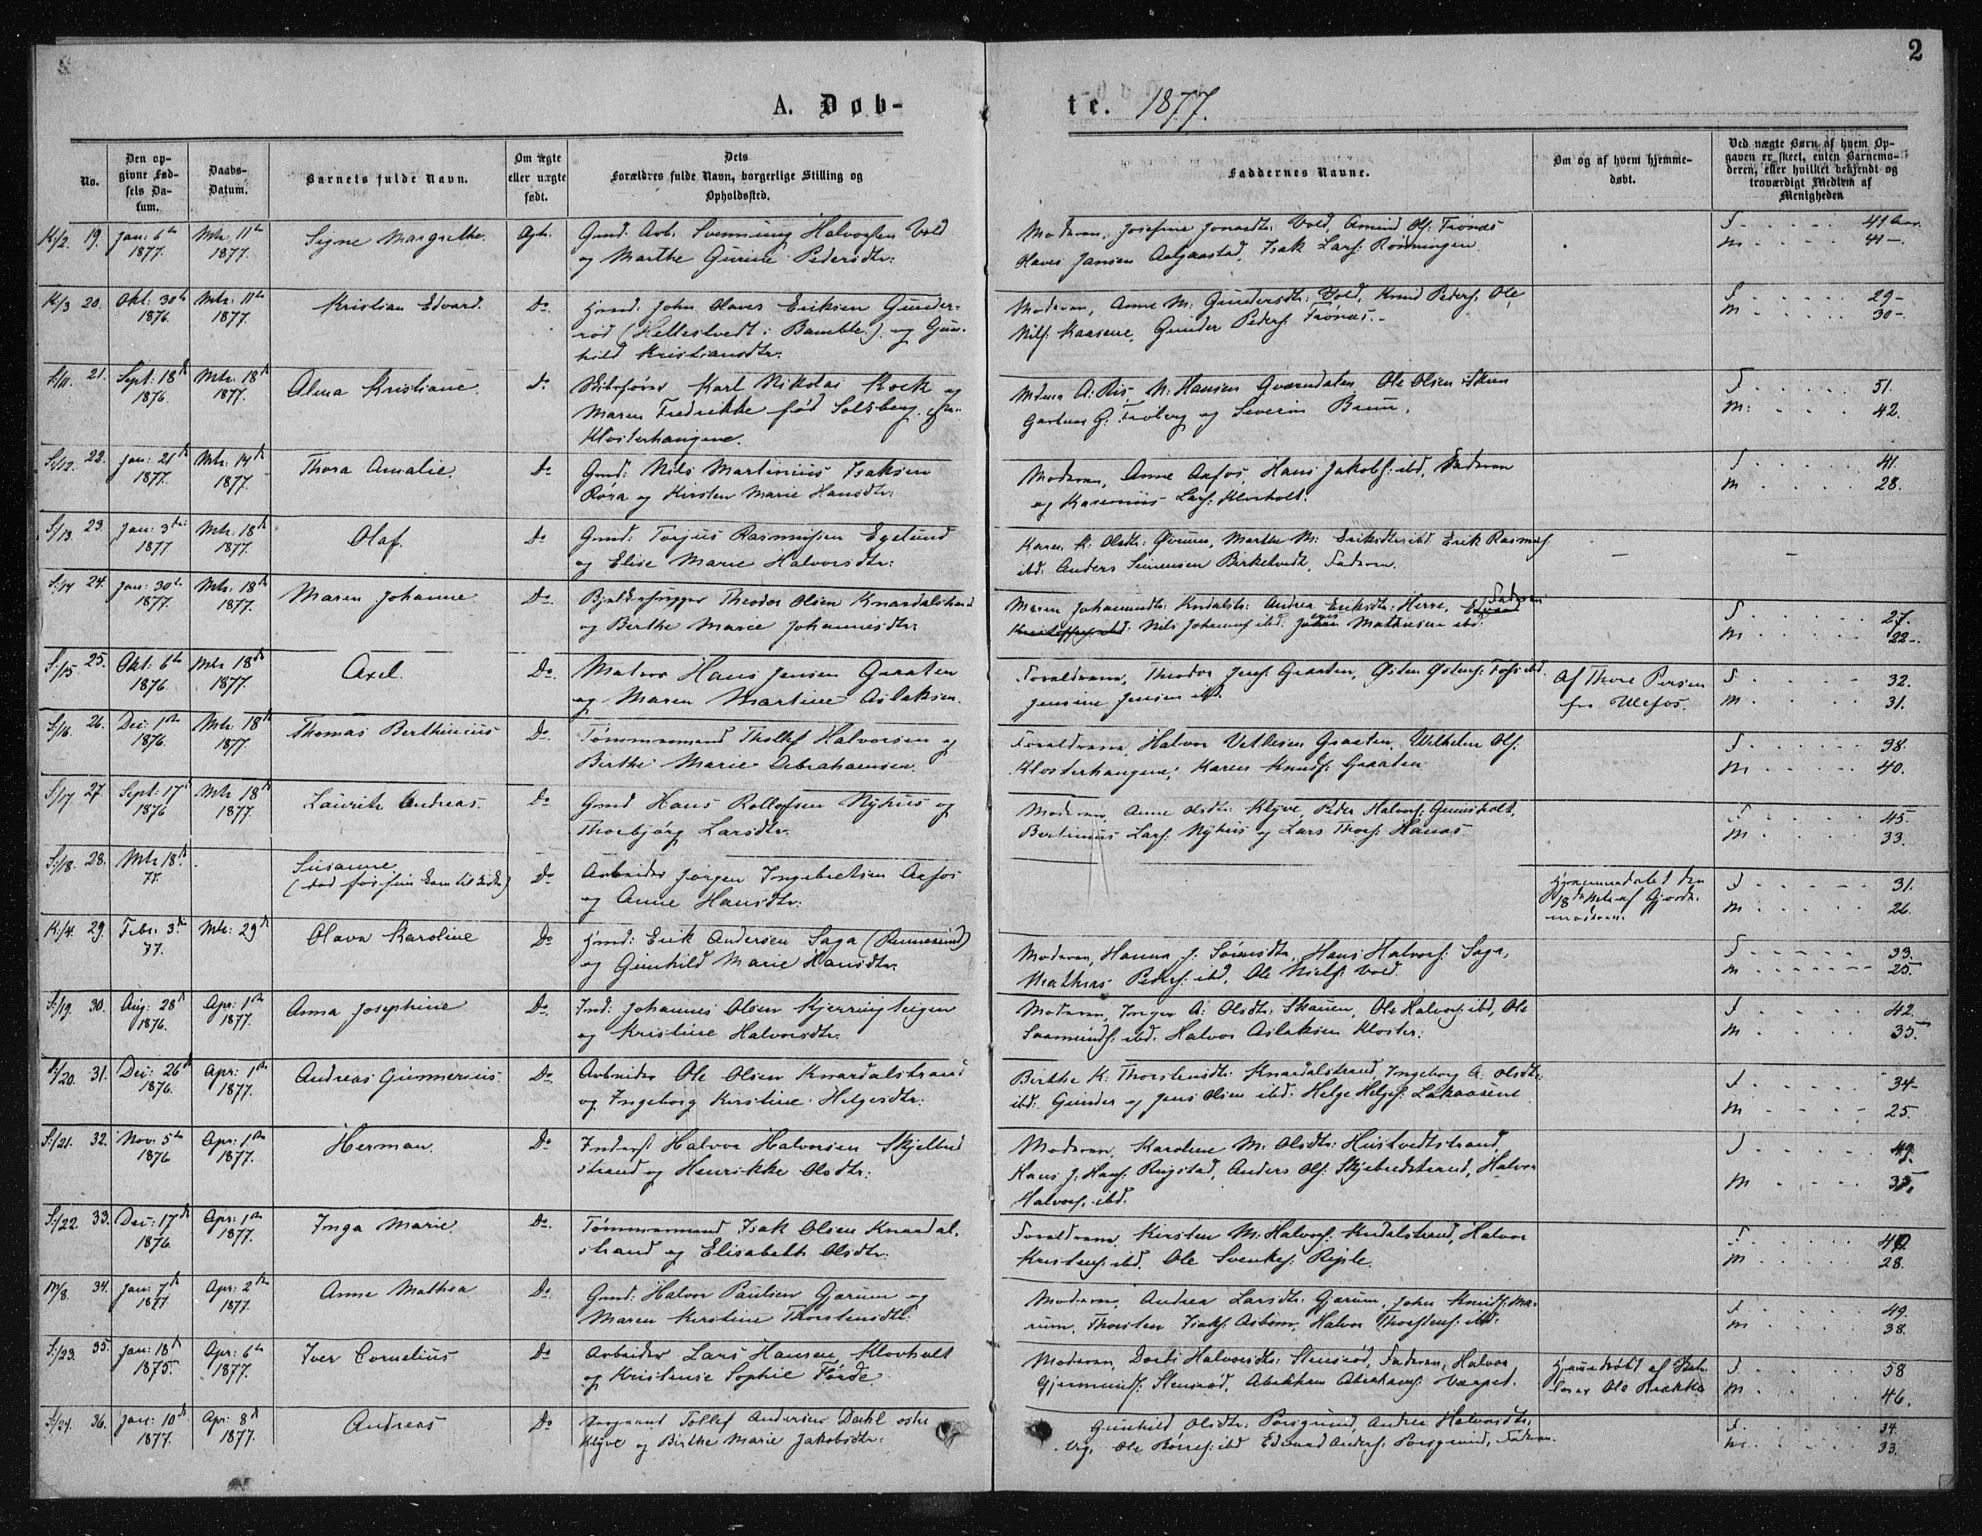 2
A. Døb-
te. 1877.
No.
Den opgivne Fødsels Datum.
Daabs-Datum.
Barnets fulde Navn.
Om ægte eller uægte født.
Dets Forældres fulde Navn, borgerlige Stilling og Opholdssted.
Faddernes Navne.
Om og af hvem hjemmedøbt.
Ved uægte Børn af hvem Opgaven er skeet, enten Barnemoderen, eller hvilket bekjendt og troværdigt Medlem af Menigheden
K/2. 19. Jan: 6te 1877. Mts: 11te 1877. Signe Margrethe. Ægte. Gmd. Arb. Svenning Halvorsen Vold
og Marthe Gurine Pedersdtr:
Moderen, Josefine Jonasdtr: Vold, Amund Ols: Trønæs
Haves Jansen Aalgaastad, Isak Lars: Rødningen.
F. 41 Aar.
M. 41 —.
K/3 20. Okt: 30te 1876. Mts: 11te 1877. Kristian Edvard. Do. Gmd: John Olaves Eriksen Gunder-
rød (Hellestvedt i Bamble) og Gun-
hild Kristiansdtr:
Moderen, Anne M. Gundersdtr: Vold, Knud Peders: Ole
Nils: Kaasene, Gunder Peders: Trønæs.
F 29 —
M 30 —.
S/11. 21. Sept: 18de 1876. Mts: 18de 1877. Alma Kristiane. Do Skibsfører Karl Nikolai Koch og
Maren Fredrikke fød Solberg,
Klosterhaugene.
A: Ris, N: Hansen Gværndalen Ole Olsen Skien
Gartner G. Froberg og Severin Bruun.
F 51.
M: 42.
S/12. 22. Jan: 21de 1877. Mts: 14de 1877. Thora Amalie. Do Gmd: Nils Martinius Isaksen
Røra og Kirsten Marie Hansdtr:
Moderen, Anne Aafos, Hans Jakobs: ibd, Faderen
og Karenius Lars: Klovholt.
F 41.
M 28.
S/13. 23. Jan: 3die 1877 Mts: 18de 1877. Olaf. Do Gmd: Torjus Rasmussen Egelund
og Elise Marie Halvorsdtr:
Karen K. Olsdtr: Øvrum, Marthe M: Eriksdtr: ibd. Erik Rasmus:
ibd: Anders Simensen Birketvedt, Faderen.
S/14 24. Jan: 30te 1877. Mts: 18de 1877. Maren Johanne Do. Bjelkehugger Theodor Olsen Knardalstrand
og Berthe Marie Johannesdtr:
Maren Johannesdtr: Andrea Eriksdtr: Herre, Faderen
Nils Johannes: ibd. Johan Mathisen ibd.
F 27.
M 22 —.
S/15 25. Okt: 6te 1876. Mts 18de 1877. Axel. Do. Matros Hans Jensen Graaten
og Maren Martine Aslaksen.
Forældrene, Theodor Jens: Graaten, Østen Østens: Fos ibd.
Jensine Jensen ibd.
Af Thore Persen
fra Ulefos.
F 32.
M 31.
S/16. 26. Dec: 1ste 1876. Mts: 18de 1877. Thomas Berthinius Do. Tømmermand Thollef Halvorsen og
Berthe Marie Abrahamsen.
Forældrene, Halvor Vetlesen Graaten, Wilhelm Ols:
Klosterhaugene, Karen Knuds: Graaten
F 38.
M 40.
S/17 27. Sept: 17de 1876 Mts 18de 1877. Lauritz Andreas. Do Gmd Hans Rollefsen Nyhus og
Thorbjørg Larsdtr.
Moderen, Anne Olsdtr: Klyve, Peder Halvors: Gunnsholt,
Bertinius Lars: Nyhus og Lars Thors: Hanås
F 45.
M 33.
S/18. 28. Mts 18de 77. Susanne.
(død før hun kom til Kirke) Do Arbeider Jørgen Ingebretsen Aafos
og Anne Hansdtr:
Hjemmedøbt den
18de Mts af Gjorde-
moderen.
F 31.
M 26.
K/4. 29. Febr: 3die 77. Mts: 29de Olava Karoline Do Gmd: Erik Andersen Saga
og Gunhild Marie Hansdtr.
Moderen, Hanna J. Sørensdtr: Hans Halvors: Saga,
Mathias Peders: ibd, Ole Niels: Vold.
F 33.
M 25.
S/19. 30. Aug: 28de 1876. Apr: 1ste 1877. Anna Josephine Do. Ind: Johannes Olsen Kjerringteigen
og Kristine Halvorsdtr.
Moderen, Inger A: Olsdtr: Skauen, Ole Halvors: ibd, Ole
Saamunds: ibd. Halvor Aslaksen Kloster.
F 42.
M 35.
S/20. 31. Dec: 26de 1876. Apr: 1ste 1877. Andreas Gunnerius. Do. Arbeider Ole Olsen Knardalstrand
og Ingeborg Kirstine Helgesdtr:
Birthe K. Thorstensdtr: Knardalstrand, Ingeborg A. Olsdtr:
ibd: Gunder og Jens Olsen ibd: Helge Helges: Lakaasene
F 34
M 25
S/21. 32. Nov: 5te 1876 Apr: 1ste 1877. Herman. Do Inderst Halvor Halvorsen Skjelbred
strand og Henrikke Olsdtr:
Moderen, Karoline M. Olsdtr: Hustvedtstrand,
Hans J. Hans: Rugstad, Anders Ols: Skjelbredstrand, Halvor
Halvors: ibd.
F 49.
M 35.
S/22. 33. Dec: 17de 1876. Apr: 1ste 1877. Inga Marie. Do. Tømmermand Isak Olsen Knardal-
strand og Elisabeth Olsdtr:
Forældrene, Kirsten M: Halvors: Knrdalstrand, Halvor
Kristens: ibd. Ole Svenkes: Rejsle.
F 40.
M 28.
M/8. 34. Jan: 7de 1877 Apr: 2den 1877. Anne Mathea Do. Gmd: Halvor Paulsen Gjerum og
Maren Kirstine Thorstensdtr:
Moderen, Andrea Larsdtr: Gjerum, John Knuds: Mæ-
rum, Thorsten Isaks: Asbom, Halvor Thorstens: ibd.
F 49.
M 38.
S/23. 35. Jan: 18de 1875. Apr: 6te 1877. Iver Cornelius Do Arbeider Lars Hansen Klovholt
og Kristense Sophie Førde.
Moderen, Dorti Halvorsdtr: Stensrød, Faderen, Halvor
Gjermunds: Stensrød, Abraham Abrahams: Værpet.
Hjemmedøbt af
Ole Brække
F 58
M 46.
S/24. 36. Jan: 10de 1877. Apr: 8de 1877. Andreas Do Tollef Andersen Dahl østre
Klyve og Birthe Marie Jakobsdtr:
Gunhild Olsdtr: Porsgrund, Andrea Halvorsdtr:
Vig, Ole Børres: ibd Edvard Anders: Porsgrund, Faderen.
F. 34.
M. 33.